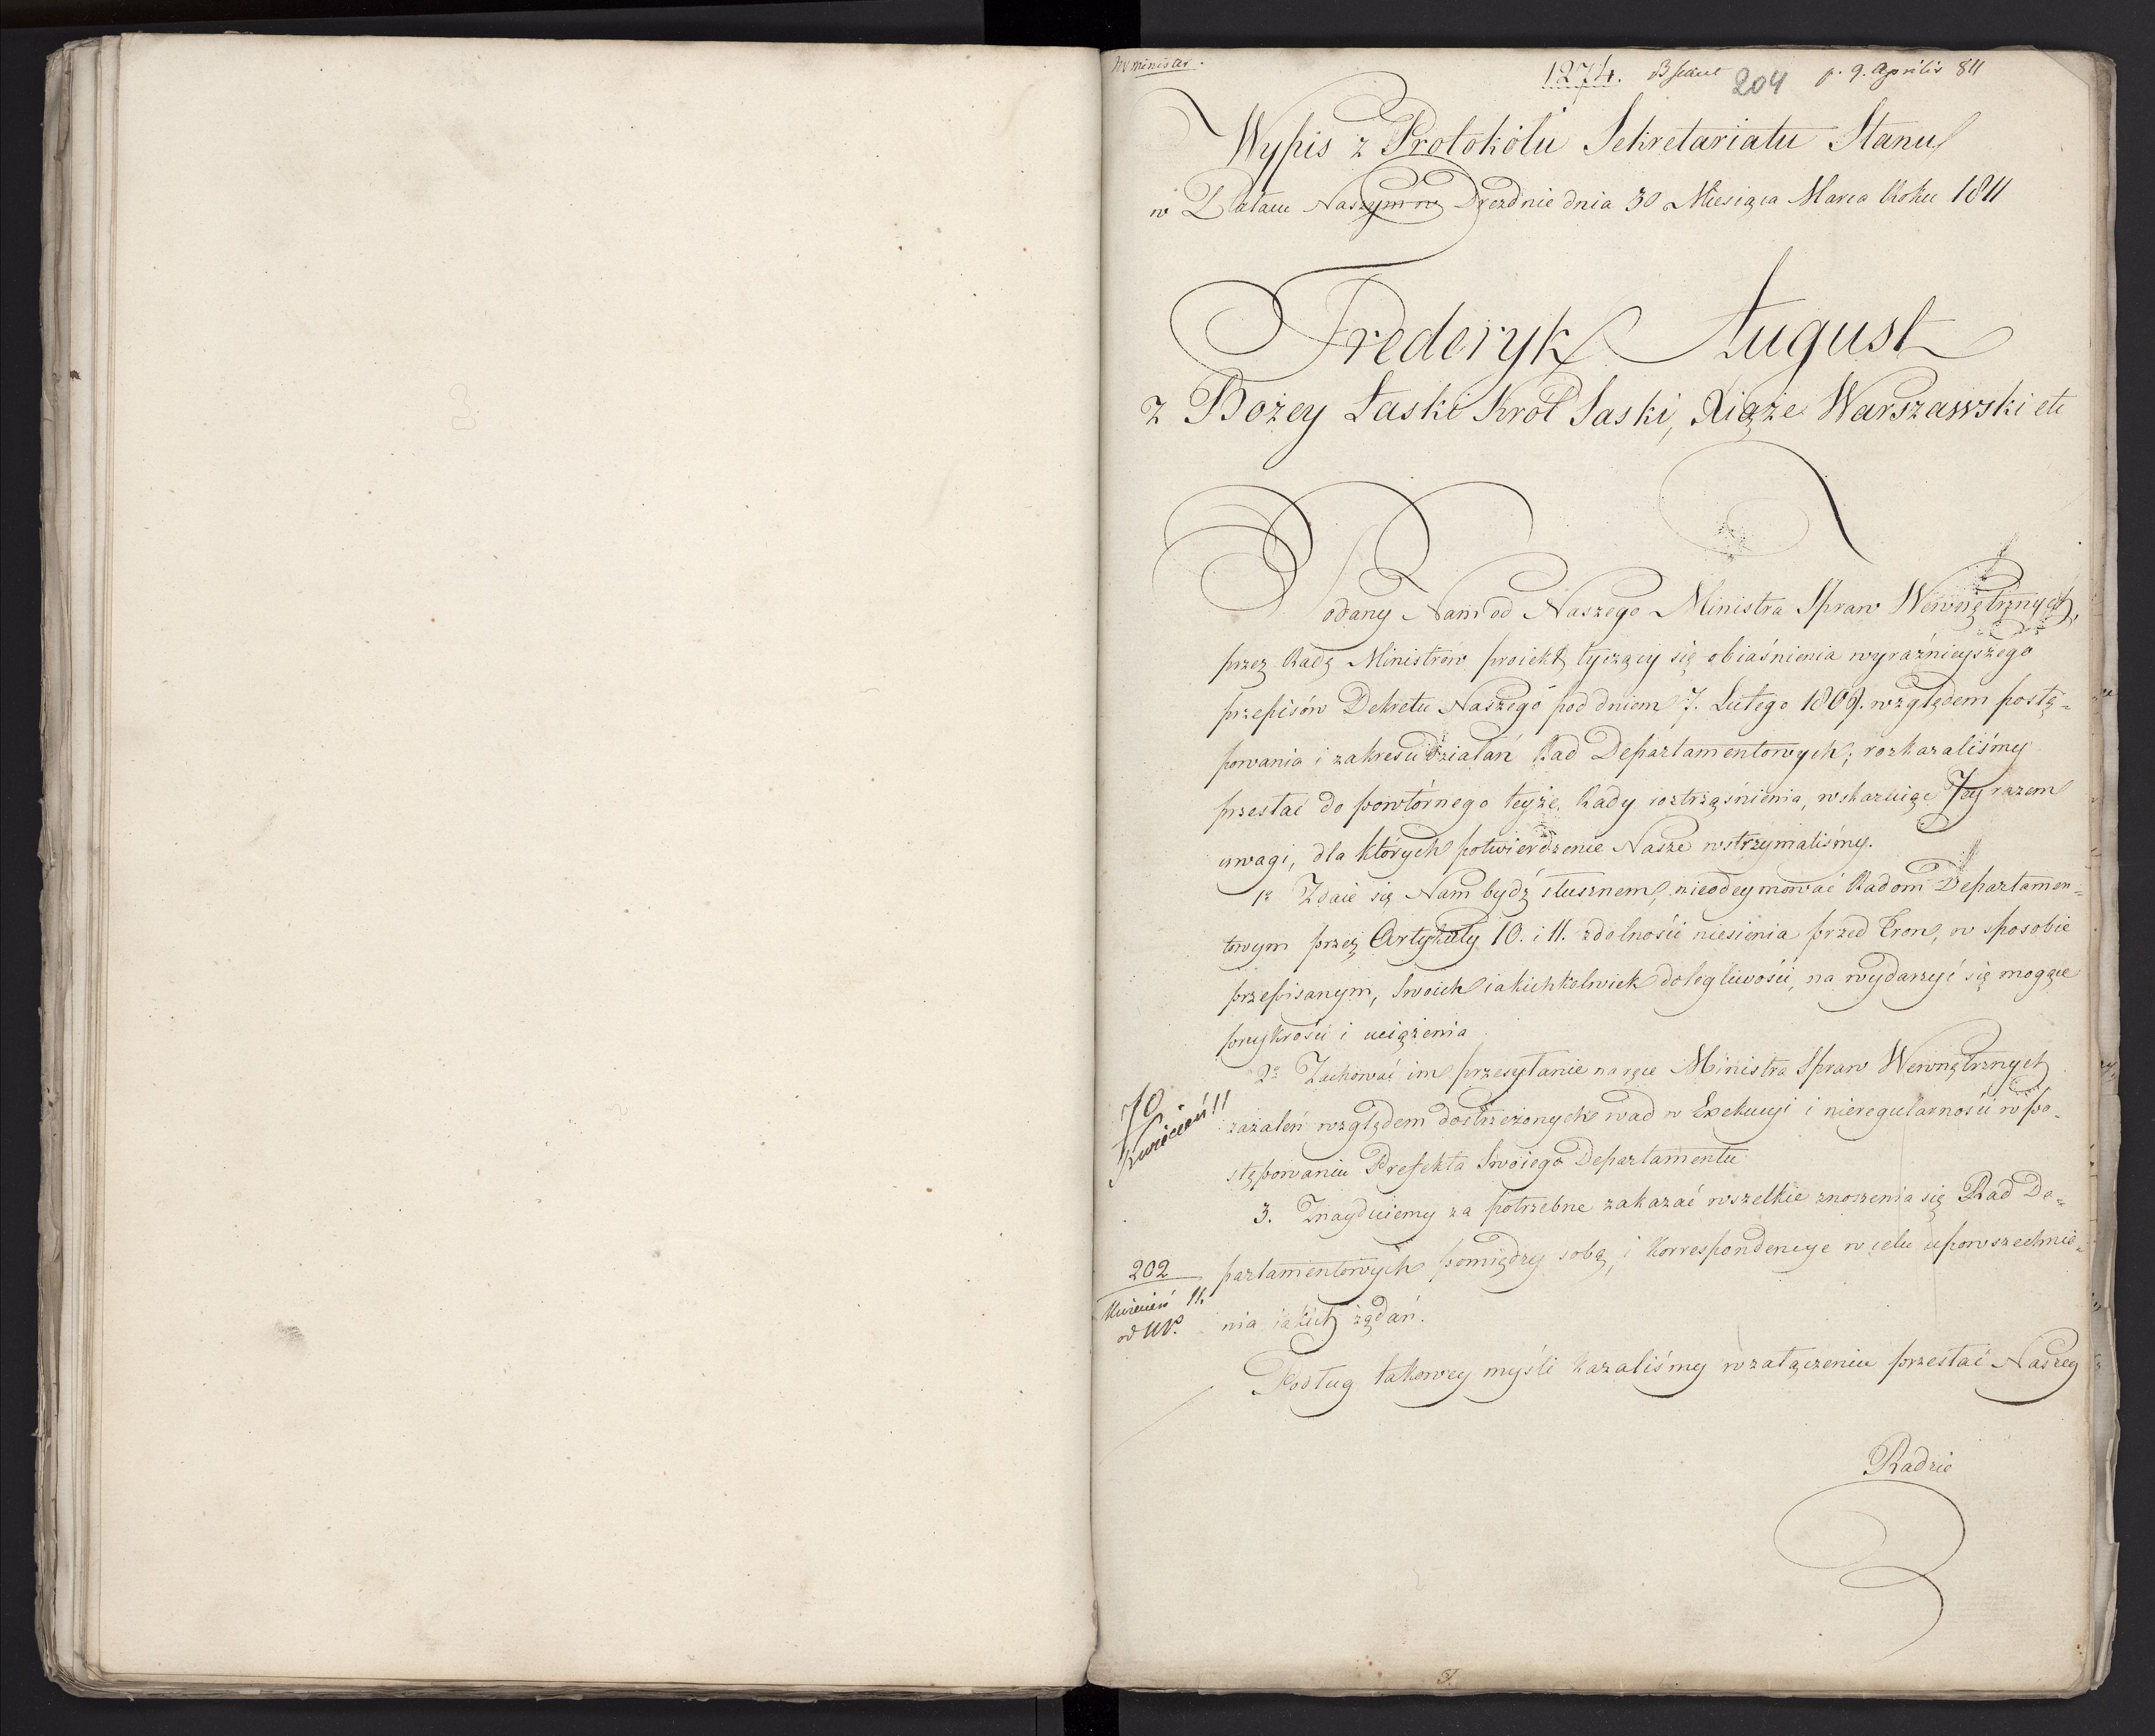 1274. 204 p. 9. Aprilis 811
Wypis z Protokółu Sekretariatu Stanu
w Pałacu Naszym w Dreznie dnia 30 Miesiąca Marca Roku 1811
Frederyk August
z Bożey Łaski Krol Saski, Xiąże Warszawski etc
Podany Nam od Naszego Ministra Spraw Wewnętrznych,
przez Radę Ministrów proiekt tyczący się obiaśnienia wyraźnieyszego
przepisów Dekretu Naszego pod dniem 7. Lutego 1809. względem postę-
powania i zakresu działań Rad Departamentowych; rozkazaliśmy
przesłać do powtórnego teyże Rady roztrząśnienia, wskazuiąc Jey razem
uwagi, dla których potwierdzenie Nasze wstrzymaliśmy.
1o Zdaie się Nam bydź słusznem, nieodeymować Radom Departamen-
towym przez Artykuły 10. i 11. zdolności niesienia przed Tron, w sposobie
przepisanym, Swoich iakichkolwiek dolegliwości, na wydarzyć się mogące
przykrości i uciążenia
2o Zachować im przesyłanie na ręce Ministra Spraw Wewnętrznych
zażaleń względem dostrzeżonych wad w Exekucyi i nieregularności w po-
stępowaniu Prefekta Swoiego Departamentu
3. Znayduiemy za potrzebne zakazać wszelkie znoszenia się Rad De-
partamentowych pomiędzy sobą, i korrespondencye w celu upowszechnie-
nia iakich żądań.
Podług takowey myśli kazaliśmy w załączeniu przesłać Naszey
Radzie
70
Kwiecień 11
202
Kwiecień 11.